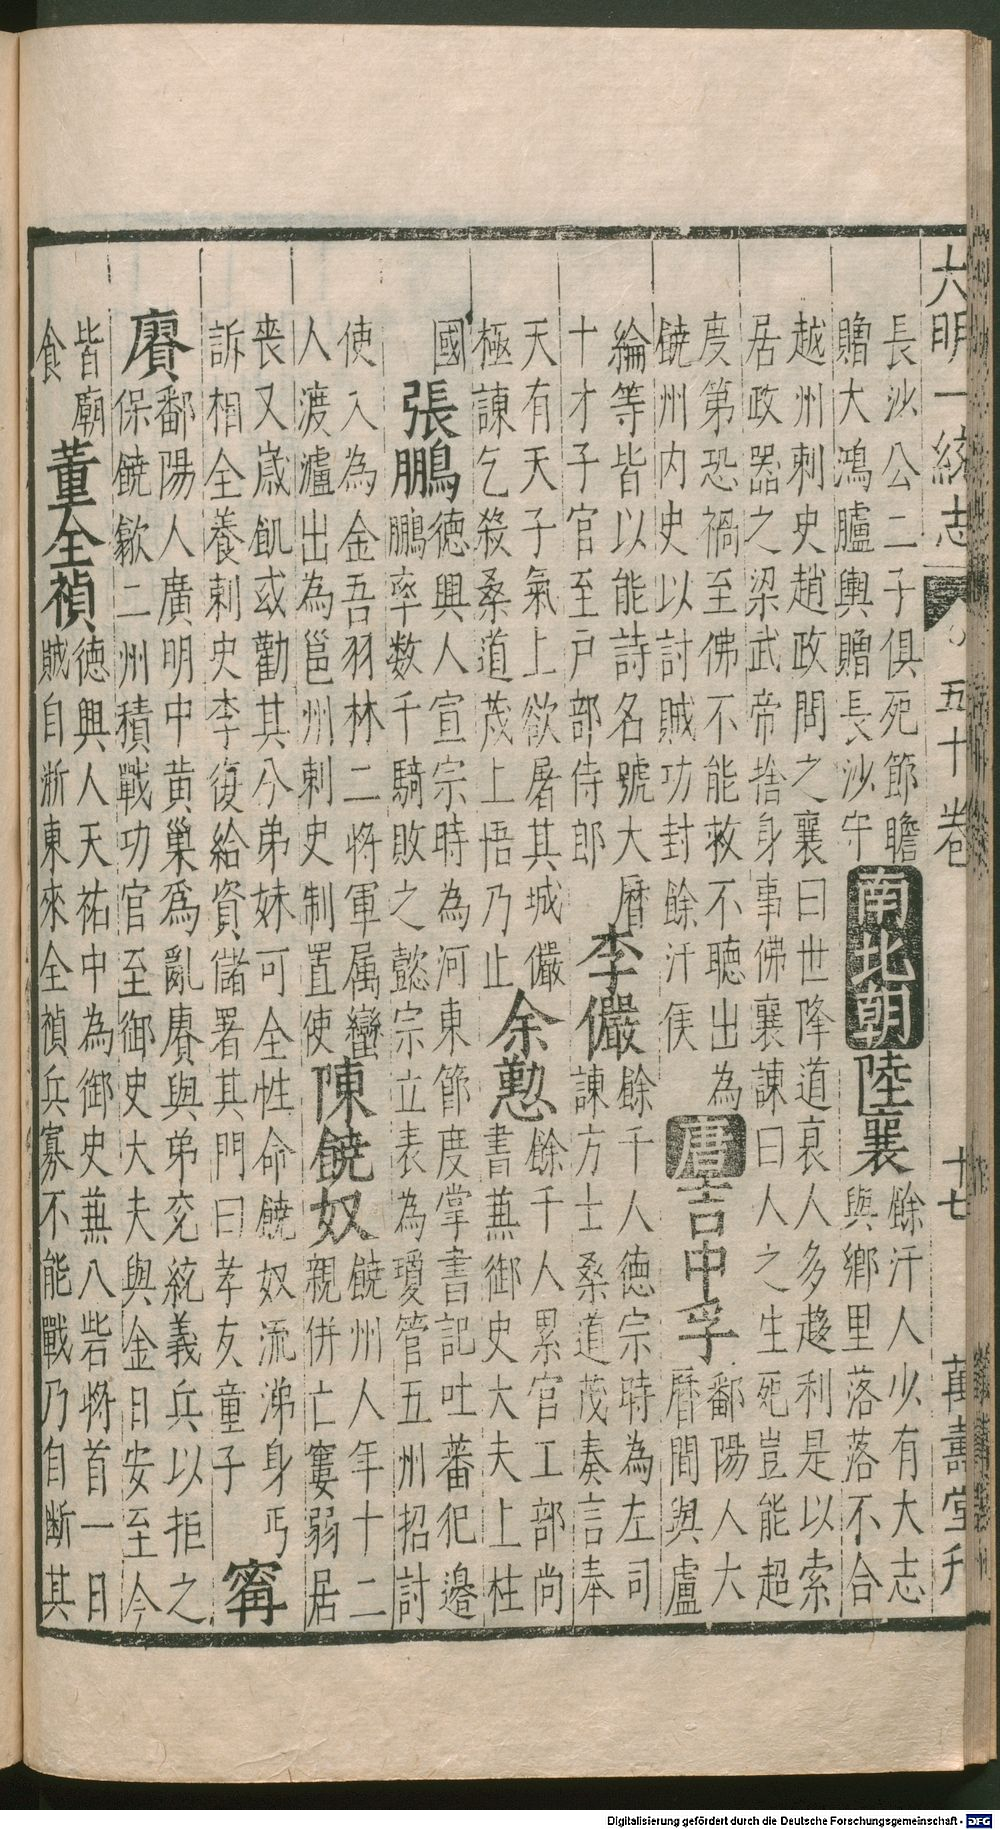 大明一統志 五十卷 十七 萬壽堂刊
長沙公二子俱死節瞻
贈大鴻臚輿贈長沙守
南北朝
陸襄
餘汗人少有大志
與鄉里落落不合
越州刺史趙政問之襄曰世降道哀人多趨利是以索
居政器之梁武帝捨身事佛襄諫曰人之生死豈能超
度第恐禍至佛不能救不聽出為
饒州内史以討賊功封餘汗侯
唐
吉中孚
鄱陽人大
曆間與盧
綸等皆以能詩名號大曆
十才子官至户部侍郎
李儼
餘千人德宗時為左司
諫方士桑道茂奏言奉
天有天子氣上欲屠其城儼
極諫乞殺桑道茂上悟乃止
余懃
餘千人累官工部尚
書兼御史大夫上柱
國
張鵬
德興人宣宗時為河東節度掌書記吐蕃犯邊
鵬率数千騎敗之懿宗立表為瓊管五州招討
使入為金吾羽林二將軍属蠻
人渡瀘出為邕州刺史制置使
陳饒奴
饒州人年十二
親併亡窶弱居
喪又歲飢或勸其分弟妹可全性命饒奴流涕身丐
訴相全養刺史李復給資儲署其門曰孝友童子
甯
賡
鄱陽人廣明中黄巢為亂賡與弟兖統義兵以拒之
保饒歙二州積戰功官至御史大夫與金日安至今
皆廟
食
董全禎
德興人天祐中為御史兼八砦將首一日
賊自浙東來全禎兵寡不能戰乃自断其
Digitalisierung gefördert durch die Deutsche Forschungsgemeinschaft - DFG